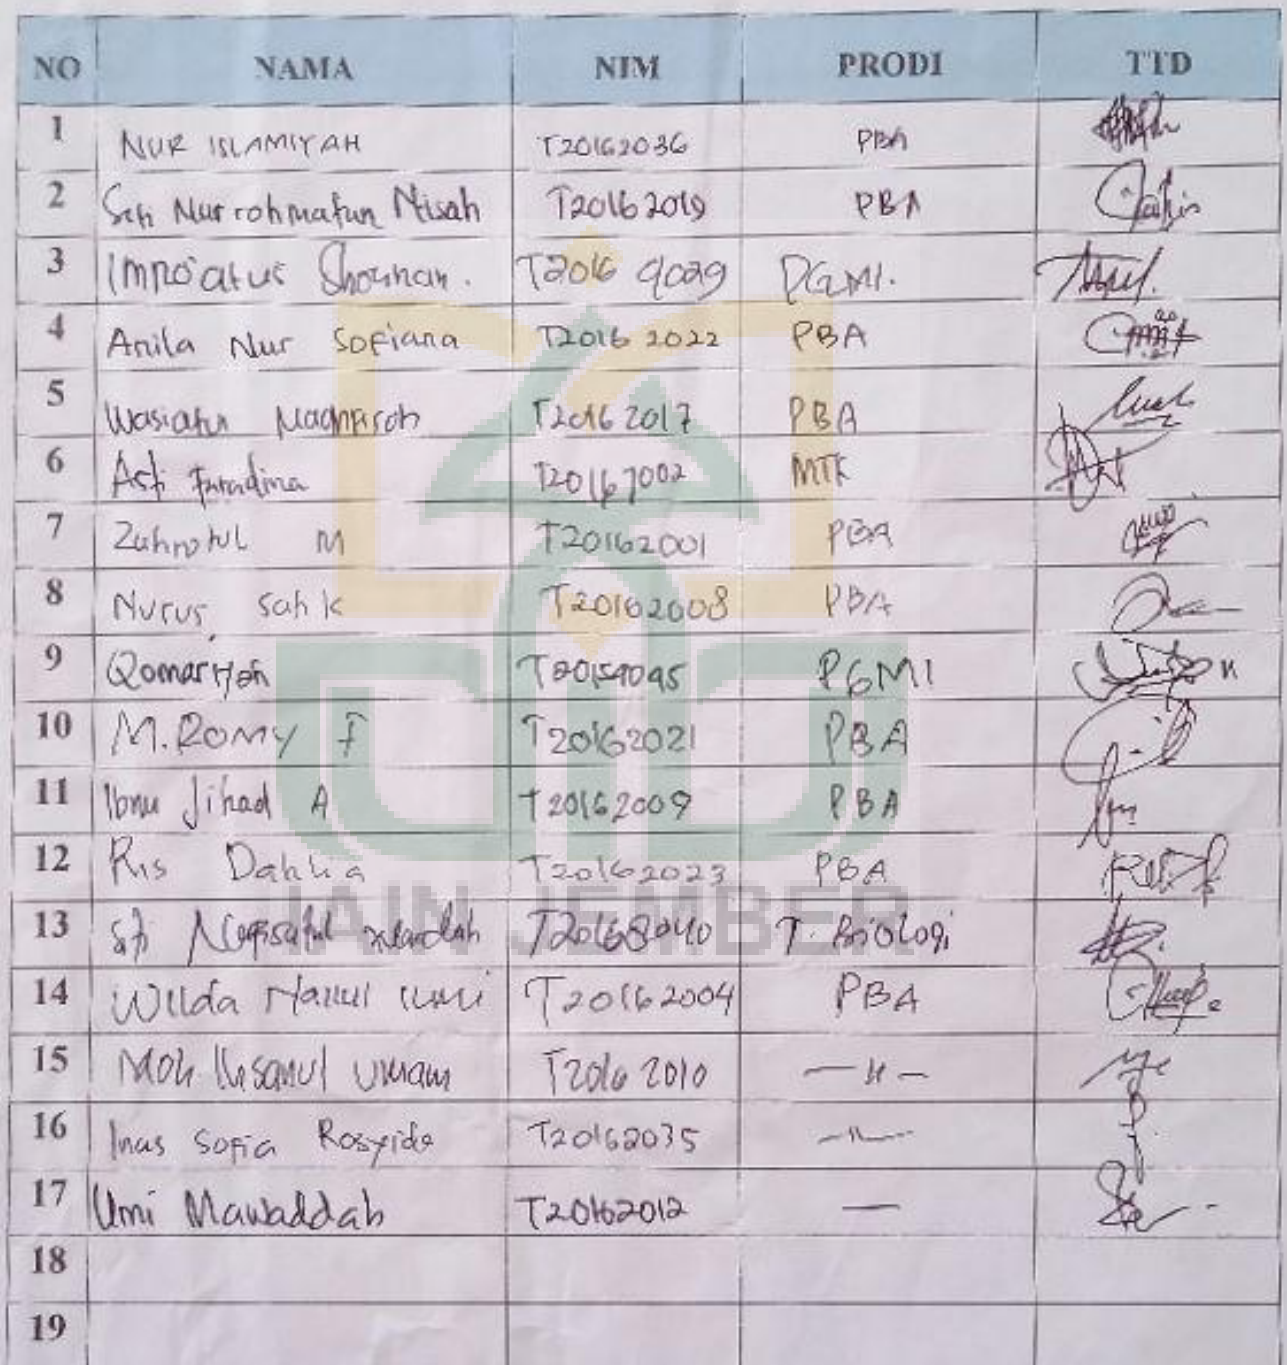 NO NAMA NIM PRODI TTD
1 NUR ISLAMIYAH T20162036 PBA
2 Siti Nurrohmatun Nisah T20162019 PBA
3 Imro'atus T2016 9029 PGMI.
4 Anila Nur Sofiana T2016 2022 PBA
5 Wasiatun Maghfiroh T2016 2017 PBA
6 Asfi Faradina T20167002 MTK
7 Zahrotul M T20162001 PBA
8 Nurus Sah k T20162008 PBA
9 Qomariyah PGMI
10 M. ROMY F T20162021 PBA
11 Ibnu Jihad A T20162009 PBA
12 Ris Dahlia T20162023 PBA
13 Siti T20168040 T. Biologi
14 Wilda T20162004 PBA
15 Moh. Ihsanul Umam T2016 2010 — 〃 —
16 Inas Sofia Rosyida T20162035 — 〃 —
17 Umi Mawaddah T20162012 —
18
19
IAIN JEMBER